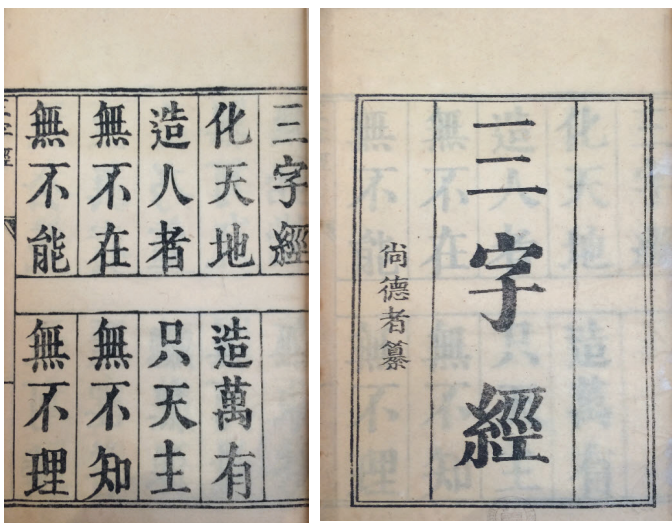 三字經
尙德者纂
三字經
化天地 造萬有
造人者 只天主
無不在 無不知
無不能 無不理